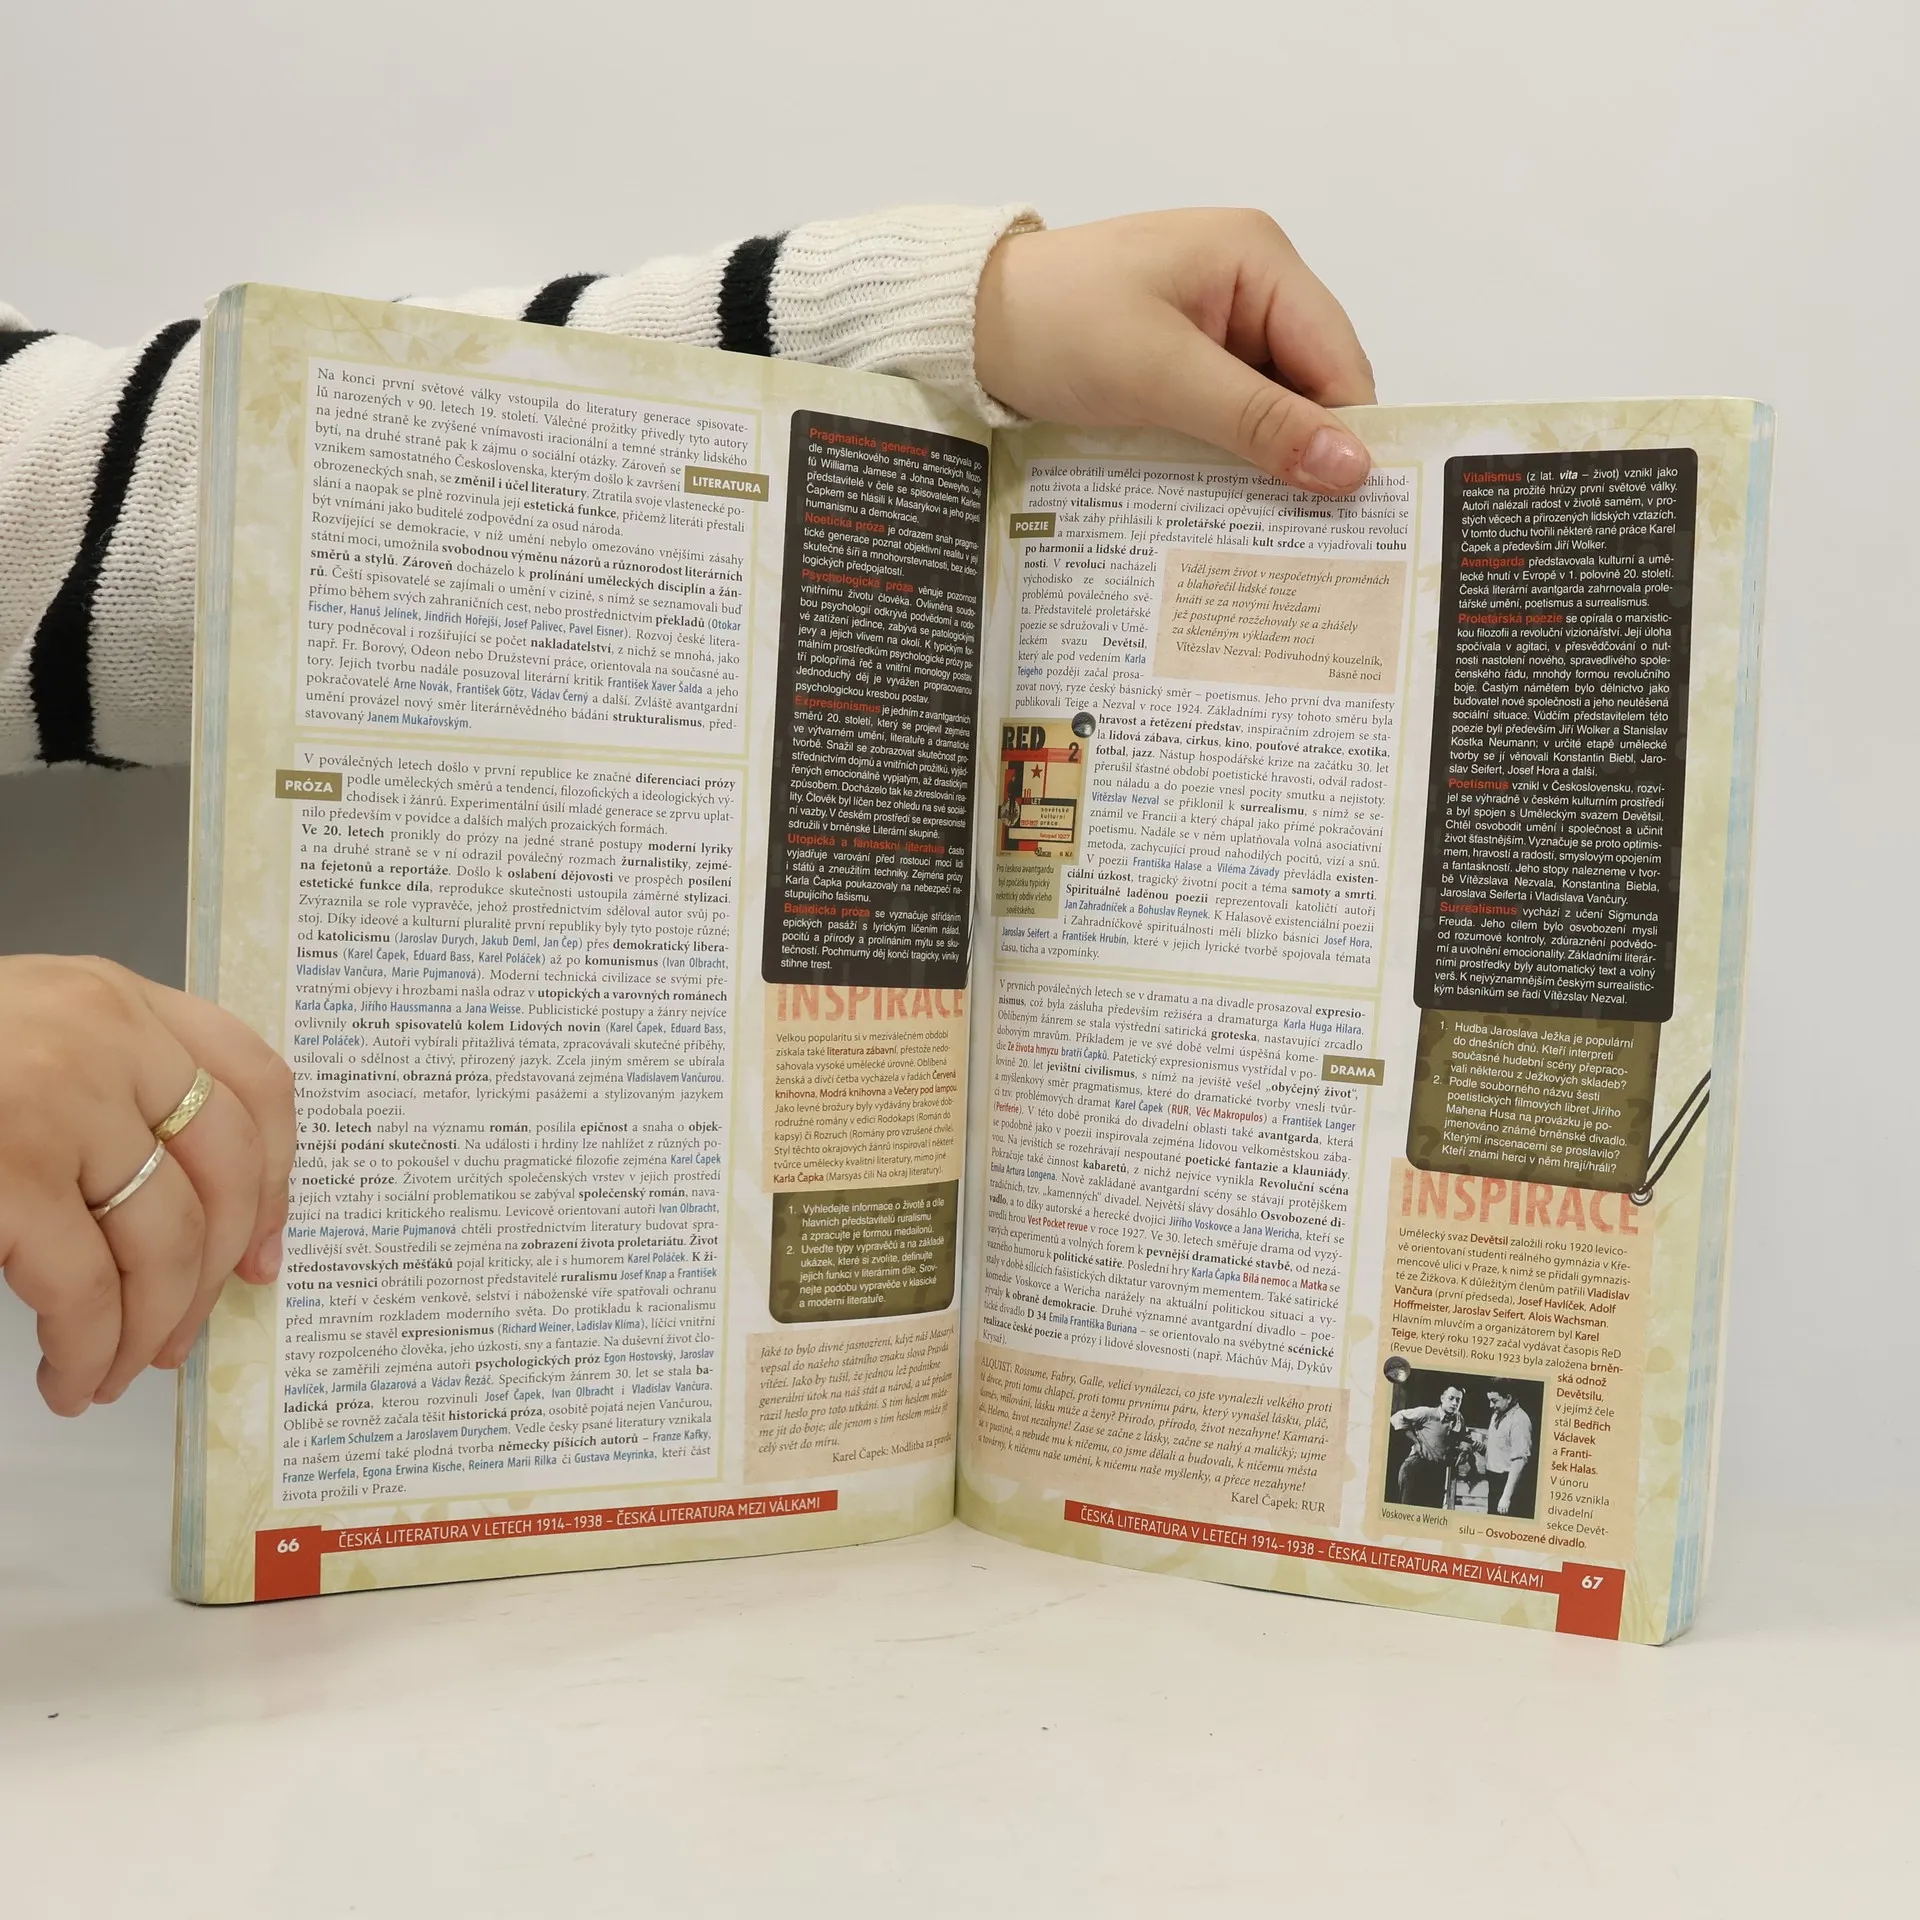 Na konci první světové války vstoupila do literatury generace spisovate-
lů narozených v 90. letech 19. století. Válečné prožitky přivedly tyto autory
na jedné straně ke zvýšené vnímavosti iracionální a temné stránky lidského
bytí, na druhé straně pak k zájmu o sociální otázky. Zároveň se
vznikem samostatného Československa, kterým došlo k završení
LITERATURA
obrozeneckých snah, se změnil i účel literatury. Ztratila svoje vlastenecké po-
slání a naopak se plně rozvinula její estetická funkce, přičemž literáti přestali
být vnímáni jako buditelé zodpovědní za osud národa.
Rozvíjející se demokracie, v níž umění nebylo omezováno vnějšími zásahy
státní moci, umožnila svobodnou výměnu názorů a různorodost literárních
směrů a stylů. Zároveň docházelo k prolínání uměleckých disciplín a žán-
rů. Čeští spisovatelé se zajímali o umění v cizině, s nímž se seznamovali buď
přímo během svých zahraničních cest, nebo prostřednictvím překladů (Otokar
Fischer, Hanuš Jelínek, Jindřich Hořejší, Josef Palivec, Pavel Eisner). Rozvoj české litera-
tury podněcoval i rozšiřující se počet nakladatelství, z nichž se mnohá, jako
např. Fr. Borový, Odeon nebo Družstevní práce, orientovala na současné au-
tory. Jejich tvorbu nadále posuzoval literární kritik František Xaver Šalda a jeho
pokračovatelé Arne Novák, František Götz, Václav Černý a další. Zvláště avantgardní
umění provázel nový směr literárněvědného bádání strukturalismus, před-
stavovaný Janem Mukařovským.
V poválečných letech došlo v první republice ke značné diferenciaci prózy
PRÓZA
podle uměleckých směrů a tendencí, filozofických a ideologických vý-
chodisek i žánrů. Experimentální úsilí mladé generace se zprvu uplat-
nilo především v povídce a dalších malých prozaických formách.
Ve 20. letech pronikly do prózy na jedné straně postupy moderní lyriky
a na druhé straně se v ní odrazil poválečný rozmach žurnalistiky, zejmé-
na fejetonů a reportáže. Došlo k oslabení dějovosti ve prospěch posílení
estetické funkce díla, reprodukce skutečnosti ustoupila záměrné stylizaci.
Zvýraznila se role vypravěče, jehož prostřednictvím sděloval autor svůj po-
stoj. Díky ideové a kulturní pluralitě první republiky byly tyto postoje různé;
od katolicismu (Jaroslav Durych, Jakub Deml, Jan Čep) přes demokratický libera-
lismus (Karel Čapek, Eduard Bass, Karel Poláček) až po komunismus (Ivan Olbracht,
Vladislav Vančura, Marie Pujmanová). Moderní technická civilizace se svými pře-
vratnými objevy i hrozbami našla odraz v utopických a varovných románech
Karla Čapka, Jiřího Haussmanna a Jana Weisse. Publicistické postupy a žánry nejvíce
ovlivnily okruh spisovatelů kolem Lidových novin (Karel Čapek, Eduard Bass,
Karel Poláček). Autoři vybírali přitažlivá témata, zpracovávali skutečné příběhy,
usilovali o sdělnost a čtivý, přirozený jazyk. Zcela jiným směrem se ubírala
tzv. imaginativní, obrazná próza, představovaná zejména Vladislavem Vančurou.
Množstvím asociací, metafor, lyrickými pasážemi a stylizovaným jazykem
se podobala poezii.
Ve 30. letech nabyl na významu román, posílila epičnost a snaha o objek-
tivnější podání skutečnosti. Na události i hrdiny lze nahlížet z různých po-
hledů, jak se o to pokoušel v duchu pragmatické filozofie zejména Karel Čapek
v noetické próze. Životem určitých společenských vrstev v jejich prostředí
a jejich vztahy i sociální problematikou se zabýval společenský román, nava-
zující na tradici kritického realismu. Levicově orientovaní autoři Ivan Olbracht,
Marie Majerová, Marie Pujmanová chtěli prostřednictvím literatury budovat spra-
vedlivější svět. Soustředili se zejména na zobrazení života proletariátu. Život
středostavovských měšťáků pojal kriticky, ale i s humorem Karel Poláček. K ži-
votu na vesnici obrátili pozornost představitelé ruralismu Josef Knap a František
Křelina, kteří v českém venkově, selství i náboženské víře spatřovali ochranu
před mravním rozkladem moderního světa. Do protikladu k racionalismu
a realismu se stavěl expresionismus (Richard Weiner, Ladislav Klíma), líčící vnitřní
stavy rozpolceného člověka, jeho úzkosti, sny a fantazie. Na duševní život člo-
věka se zaměřili zejména autoři psychologických próz Egon Hostovský, Jaroslav
Havlíček, Jarmila Glazarová a Václav Řezáč. Specifickým žánrem 30. let se stala ba-
ladická próza, kterou rozvinuli Josef Čapek, Ivan Olbracht i Vladislav Vančura.
Oblibě se rovněž začala těšit historická próza, osobitě pojatá nejen Vančurou,
ale i Karlem Schulzem a Jaroslavem Durychem. Vedle česky psané literatury vznikala
na našem území také plodná tvorba německy píšících autorů – Franze Kafky,
Franze Werfela, Egona Erwina Kische, Reinera Marii Rilka či Gustava Meyrinka, kteří část
života prožili v Praze.
Pragmatická generace se nazývala po-
dle myšlenkového směru amerických filozo-
fů Williama Jamese a Johna Deweyho. Její
představitelé v čele se spisovatelem Karlem
Čapkem se hlásili k Masarykovi a jeho pojetí
humanismu a demokracie.
Noetická próza je odrazem snah pragma-
tické generace poznat objektivní realitu v její
skutečné šíři a mnohovrstevnatosti, bez ideo-
logických předpojatostí.
Psychologická próza věnuje pozornost
vnitřnímu životu člověka. Ovlivněna soudo-
bou psychologií odkrývá podvědomí a rodo-
vé zatížení jedince, zabývá se patologickými
jevy a jejich vlivem na okolí. K typickým for-
málním prostředkům psychologické prózy pa-
tří polopřímá řeč a vnitřní monology postav.
Jednoduchý děj je vyvážen propracovanou
psychologickou kresbou postav.
Expresionismus je jedním z avantgardních
směrů 20. století, který se projevil zejména
ve výtvarném umění, literatuře a dramatické
tvorbě. Snažil se zobrazovat skutečnost pro-
střednictvím dojmů a vnitřních prožitků, vyjád-
řených emocionálně vypjatým, až drastickým
způsobem. Docházelo tak ke zkreslování rea-
lity. Člověk byl líčen bez ohledu na své sociál-
ní vazby. V českém prostředí se expresionisté
sdružili v brněnské Literární skupině.
Utopická a fantaskní literatura často
vyjadřuje varování před rostoucí mocí lidí
i států a zneužitím techniky. Zejména prózy
Karla Čapka poukazovaly na nebezpečí na-
stupujícího fašismu.
Baladická próza se vyznačuje střídáním
epických pasáží s lyrickým líčením nálad,
pocitů a přírody a prolínáním mýtu se sku-
tečností. Pochmurný děj končí tragicky, viníky
stihne trest.
INSPIRACE
Velkou popularitu si v meziválečném období
získala také literatura zábavní, přestože nedo-
sahovala vysoké umělecké úrovně. Oblíbená
ženská a dívčí četba vycházela v řadách Červená
knihovna, Modrá knihovna a Večery pod lampou.
Jako levné brožury byly vydávány brakové dob-
rodružné romány v edici Rodokaps (Román do
kapsy) či Rozruch (Romány pro vzrušené chvíle).
Styl těchto okrajových žánrů inspiroval i některé
tvůrce umělecky kvalitní literatury, mimo jiné
Karla Čapka (Marsyas čili Na okraj literatury).
1. Vyhledejte informace o životě a díle
hlavních představitelů ruralismu
a zpracujte je formou medailonů.
2. Uveďte typy vypravěčů a na základě
ukázek, které si zvolíte, definujte
jejich funkci v literárním díle. Srov-
nejte podobu vypravěče v klasické
a moderní literatuře.
Jaké to bylo divné jasnozření, když náš Masaryk
vepsal do našeho státního znaku slova Pravda
vítězí. Jako by tušil, že jednou lež podnikne
generální útok na náš stát a národ, a už předem
razil heslo pro toto utkání. S tím heslem může-
me jít do boje; ale jenom s tím heslem může jít
celý svět do míru.
Karel Čapek: Modlitba za pravdu
66 ČESKÁ LITERATURA V LETECH 1914–1938 – ČESKÁ LITERATURA MEZI VÁLKAMI
Po válce obrátili umělci pozornost k prostým všedním vihli hod-
notu života a lidské práce. Nově nastupující generaci tak zpočátku ovlivňoval
radostný vitalismus i moderní civilizaci opěvující civilismus. Tito básníci se
POEZIE
však záhy přihlásili k proletářské poezii, inspirované ruskou revolucí
a marxismem. Její představitelé hlásali kult srdce a vyjadřovali touhu
po harmonii a lidské druž-
nosti. V revoluci nacházeli
východisko ze sociálních
problémů poválečného svě-
ta. Představitelé proletářské
poezie se sdružovali v Umě-
leckém svazu Devětsil,
který ale pod vedením Karla
Teigeho později začal prosa-
Viděl jsem život v nespočetných proměnách
a blahořečil lidské touze
hnáti se za novými hvězdami
jež postupně rozžehovaly se a zhášely
za skleněným výkladem noci
Vítězslav Nezval: Podivuhodný kouzelník,
Básně noci
zovat nový, ryze český básnický směr – poetismus. Jeho první dva manifesty
publikovali Teige a Nezval v roce 1924. Základními rysy tohoto směru byla
hravost a řetězení představ, inspiračním zdrojem se sta-
la lidová zábava, cirkus, kino, pouťové atrakce, exotika,
fotbal, jazz. Nástup hospodářské krize na začátku 30. let
přerušil šťastné období poetistické hravosti, odvál radost-
nou náladu a do poezie vnesl pocity smutku a nejistoty.
Vítězslav Nezval se přiklonil k surrealismu, s nímž se se-
známil ve Francii a který chápal jako přímé pokračování
poetismu. Nadále se v něm uplatňovala volná asociativní
metoda, zachycující proud nahodilých pocitů, vizí a snů.
V poezii Františka Halase a Viléma Závady převládla existen-
ciální úzkost, tragický životní pocit a téma samoty a smrti.
Spirituálně laděnou poezii reprezentovali katoličtí autoři
Jan Zahradníček a Bohuslav Reynek. K Halasově existenciální poezii
i Zahradníčkově spirituálnosti měli blízko básníci Josef Hora,
Jaroslav Seifert a František Hrubín, které v jejich lyrické tvorbě spojovala témata
času, ticha a vzpomínky.
RED
2
sovětské
kulturní
práce
listopad 1927
Pro českou avantgardu
byl zpočátku typický
nekritický obdiv všeho
sovětského.
V prvních poválečných letech se v dramatu a na divadle prosazoval expresio-
nismus, což byla zásluha především režiséra a dramaturga Karla Huga Hilara.
Oblíbeným žánrem se stala výstřední satirická groteska, nastavující zrcadlo
dobovým mravům. Příkladem je ve své době velmi úspěšná kome-
die Ze života hmyzu bratří Čapků. Patetický expresionismus vystřídal v po-
DRAMA
lovině 20. let jevištní civilismus, s nímž na jeviště vešel „obyčejný život“,
a myšlenkový směr pragmatismus, které do dramatické tvorby vnesli tvůr-
ci tzv. problémových dramat Karel Čapek (RUR, Věc Makropulos) a František Langer
(Periferie). V této době proniká do divadelní oblasti také avantgarda, která
se podobně jako v poezii inspirovala zejména lidovou velkoměstskou zába-
vou. Na jevištích se rozehrávají nespoutané poetické fantazie a klauniády.
Pokračuje také činnost kabaretů, z nichž nejvíce vynikla Revoluční scéna
Emila Artura Longena. Nově zakládané avantgardní scény se stávají protějškem
tradičních, tzv. „kamenných“ divadel. Největší slávy dosáhlo Osvobozené di-
vadlo, a to díky autorské a herecké dvojici Jiřího Voskovce a Jana Wericha, kteří se
uvedli hrou Vest Pocket revue v roce 1927. Ve 30. letech směřuje drama od vyzý-
vavých experimentů a volných forem k pevnější dramatické stavbě, od nezá-
vazného humoru k politické satiře. Poslední hry Karla Čapka Bílá nemoc a Matka se
staly v době sílících fašistických diktatur varovným mementem. Také satirické
komedie Voskovce a Wericha narážely na aktuální politickou situaci a vy-
zývaly k obraně demokracie. Druhé významné avantgardní divadlo – poe-
tické divadlo D 34 Emila Františka Buriana – se orientovalo na svébytné scénické
realizace české poezie a prózy i lidové slovesnosti (např. Máchův Máj, Dykův
Krysař).
ALQUIST: Rossume, Fabry, Galle, velicí vynálezci, co jste vynalezli velkého proti
té dívce, proti tomu chlapci, proti tomu prvnímu páru, který vynašel lásku, pláč,
úsměv, milování, lásku muže a ženy? Přírodo, přírodo, život nezahyne! Kamará-
di, Heleno, život nezahyne! Zase se začne z lásky, začne se nahý a maličký; ujme
se v pustině, a nebude mu k ničemu, co jsme dělali a budovali, k ničemu města
a továrny, k ničemu naše umění, k ničemu naše myšlenky, a přece nezahyne!
Karel Čapek: RUR
Vitalismus (z lat. vita – život) vznikl jako
reakce na prožité hrůzy první světové války.
Autoři nalézali radost v životě samém, v pro-
stých věcech a přirozených lidských vztazích.
V tomto duchu tvořili některé rané práce Karel
Čapek a především Jiří Wolker.
Avantgarda představovala kulturní a umě-
lecké hnutí v Evropě v 1. polovině 20. století.
Česká literární avantgarda zahrnovala prole-
tářské umění, poetismus a surrealismus.
Proletářská poezie se opírala o marxistic-
kou filozofii a revoluční vizionářství. Její úloha
spočívala v agitaci, v přesvědčování o nut-
nosti nastolení nového, spravedlivého spole-
čenského řádu, mnohdy formou revolučního
boje. Častým námětem bylo dělnictvo jako
budovatel nové společnosti a jeho neutěšená
sociální situace. Vůdčím představitelem této
poezie byli především Jiří Wolker a Stanislav
Kostka Neumann; v určité etapě umělecké
tvorby se jí věnovali Konstantin Biebl, Jaro-
slav Seifert, Josef Hora a další.
Poetismus vznikl v Československu, rozví-
jel se výhradně v českém kulturním prostředí
a byl spojen s Uměleckým svazem Devětsil.
Chtěl osvobodit umění i společnost a učinit
život šťastnějším. Vyznačuje se proto optimis-
mem, hravostí a radostí, smyslovým opojením
a fantaskností. Jeho stopy nalezneme v tvor-
bě Vítězslava Nezvala, Konstantina Biebla,
Jaroslava Seiferta i Vladislava Vančury.
Surrealismus vychází z učení Sigmunda
Freuda. Jeho cílem bylo osvobození mysli
od rozumové kontroly, zdůraznění podvědo-
mí a uvolnění emocionality. Základními literár-
ními prostředky byly automatický text a volný
verš. K nejvýznamnějším českým surrealistic-
kým básníkům se řadí Vítězslav Nezval.
1. Hudba Jaroslava Ježka je populární
do dnešních dnů. Kteří interpreti
současné hudební scény přepraco-
vali některou z Ježkových skladeb?
2. Podle souborného názvu šesti
poetistických filmových libret Jiřího
Mahena Husa na provázku je po-
jmenováno známé brněnské divadlo.
Kterými inscenacemi se proslavilo?
Kteří známí herci v něm hrají/hráli?
INSPIRACE
Umělecký svaz Devětsil založili roku 1920 levico-
vě orientovaní studenti reálného gymnázia v Kře-
mencové ulici v Praze, k nimž se přidali gymnazis-
té ze Žižkova. K důležitým členům patřili Vladislav
Vančura (první předseda), Josef Havlíček, Adolf
Hoffmeister, Jaroslav Seifert, Alois Wachsman.
Hlavním mluvčím a organizátorem byl Karel
Teige, který roku 1927 začal vydávat časopis ReD
(Revue Devětsil). Roku 1923 byla založena brněn-
ská odnož
Devětsilu,
v jejímž čele
stál Bedřich
Václavek
a Franti-
šek Halas.
V únoru
1926 vznikla
divadelní
sekce Devět-
silu – Osvobozené divadlo.
Voskovec a Werich
ČESKÁ LITERATURA V LETECH 1914–1938 – ČESKÁ LITERATURA MEZI VÁLKAMI 67